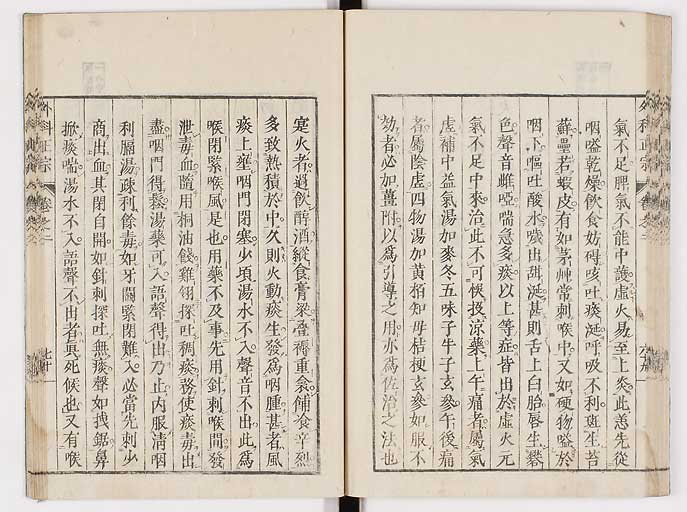 氣不足脾氣不能中護虛火易至上炎此患先從
咽嗌乾燥飲食妨碍咳吐痰涎呼吸不利斑生苔
蘚壘若蝦皮有如茅艸常刺喉中又如硬物嗌於
咽下嘔吐酸水噦出甜涎甚則舌上白胎唇生礬
色聲音雌啞喘急多痰以上等症皆出於虛火元
氣不足中來治此不可悞投涼藥上午痛者屬氣
虛補中益氣湯加麥冬五味子牛子玄參午後痛
者屬陰虛四物湯加黃栢知母桔梗玄參如服不
効者必如薑附以為引導之用亦為佐治之法也
寔火者過飲醇酒縱食膏粱疊褥重衾餔食辛烈
多致熱積於中久則火動痰生發為咽腫甚者風
痰上壅咽門閉塞少頃湯水不入聲音不出此為
喉閉緊喉風是也用藥不及事先用針刺喉間發
泄毒血隨用桐油餞雞翎探吐稠痰務使痰毒出
盡咽門得鬆湯藥可入語聲得出乃止內服清咽
利膈湯疎利餘毒如牙關緊閉難入必當先刺少
商出血其閉自開如針刺探吐無痰聲如拽鋸鼻
掀痰喘湯水不入語聲不出者真死候也又有喉
外科正宗 卷之二
七十
外科正宗 卷之二